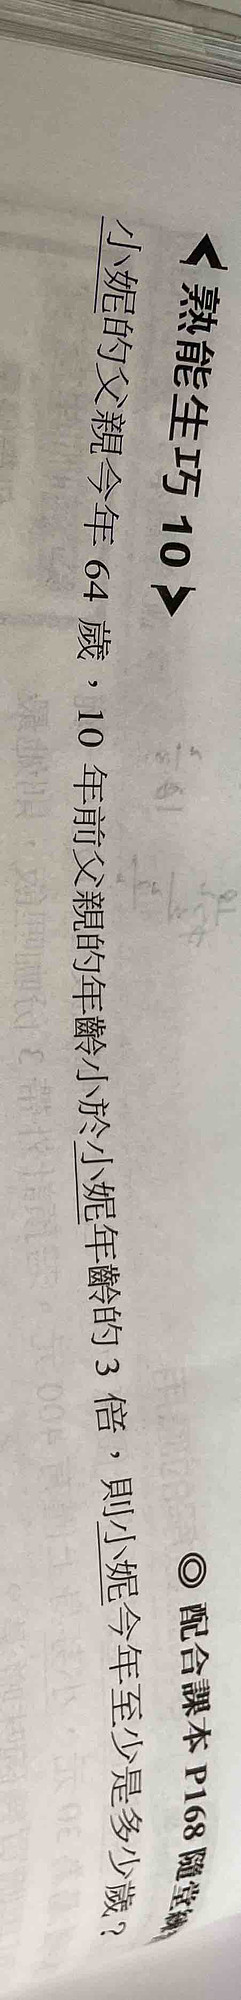 熟能生巧 10
◎ 配合課本 P168 隨堂練
小妮的父親今年 64 歲，10 年前父親的年齡小於小妮年齡的 3 倍，則小妮今年至少是多少歲？